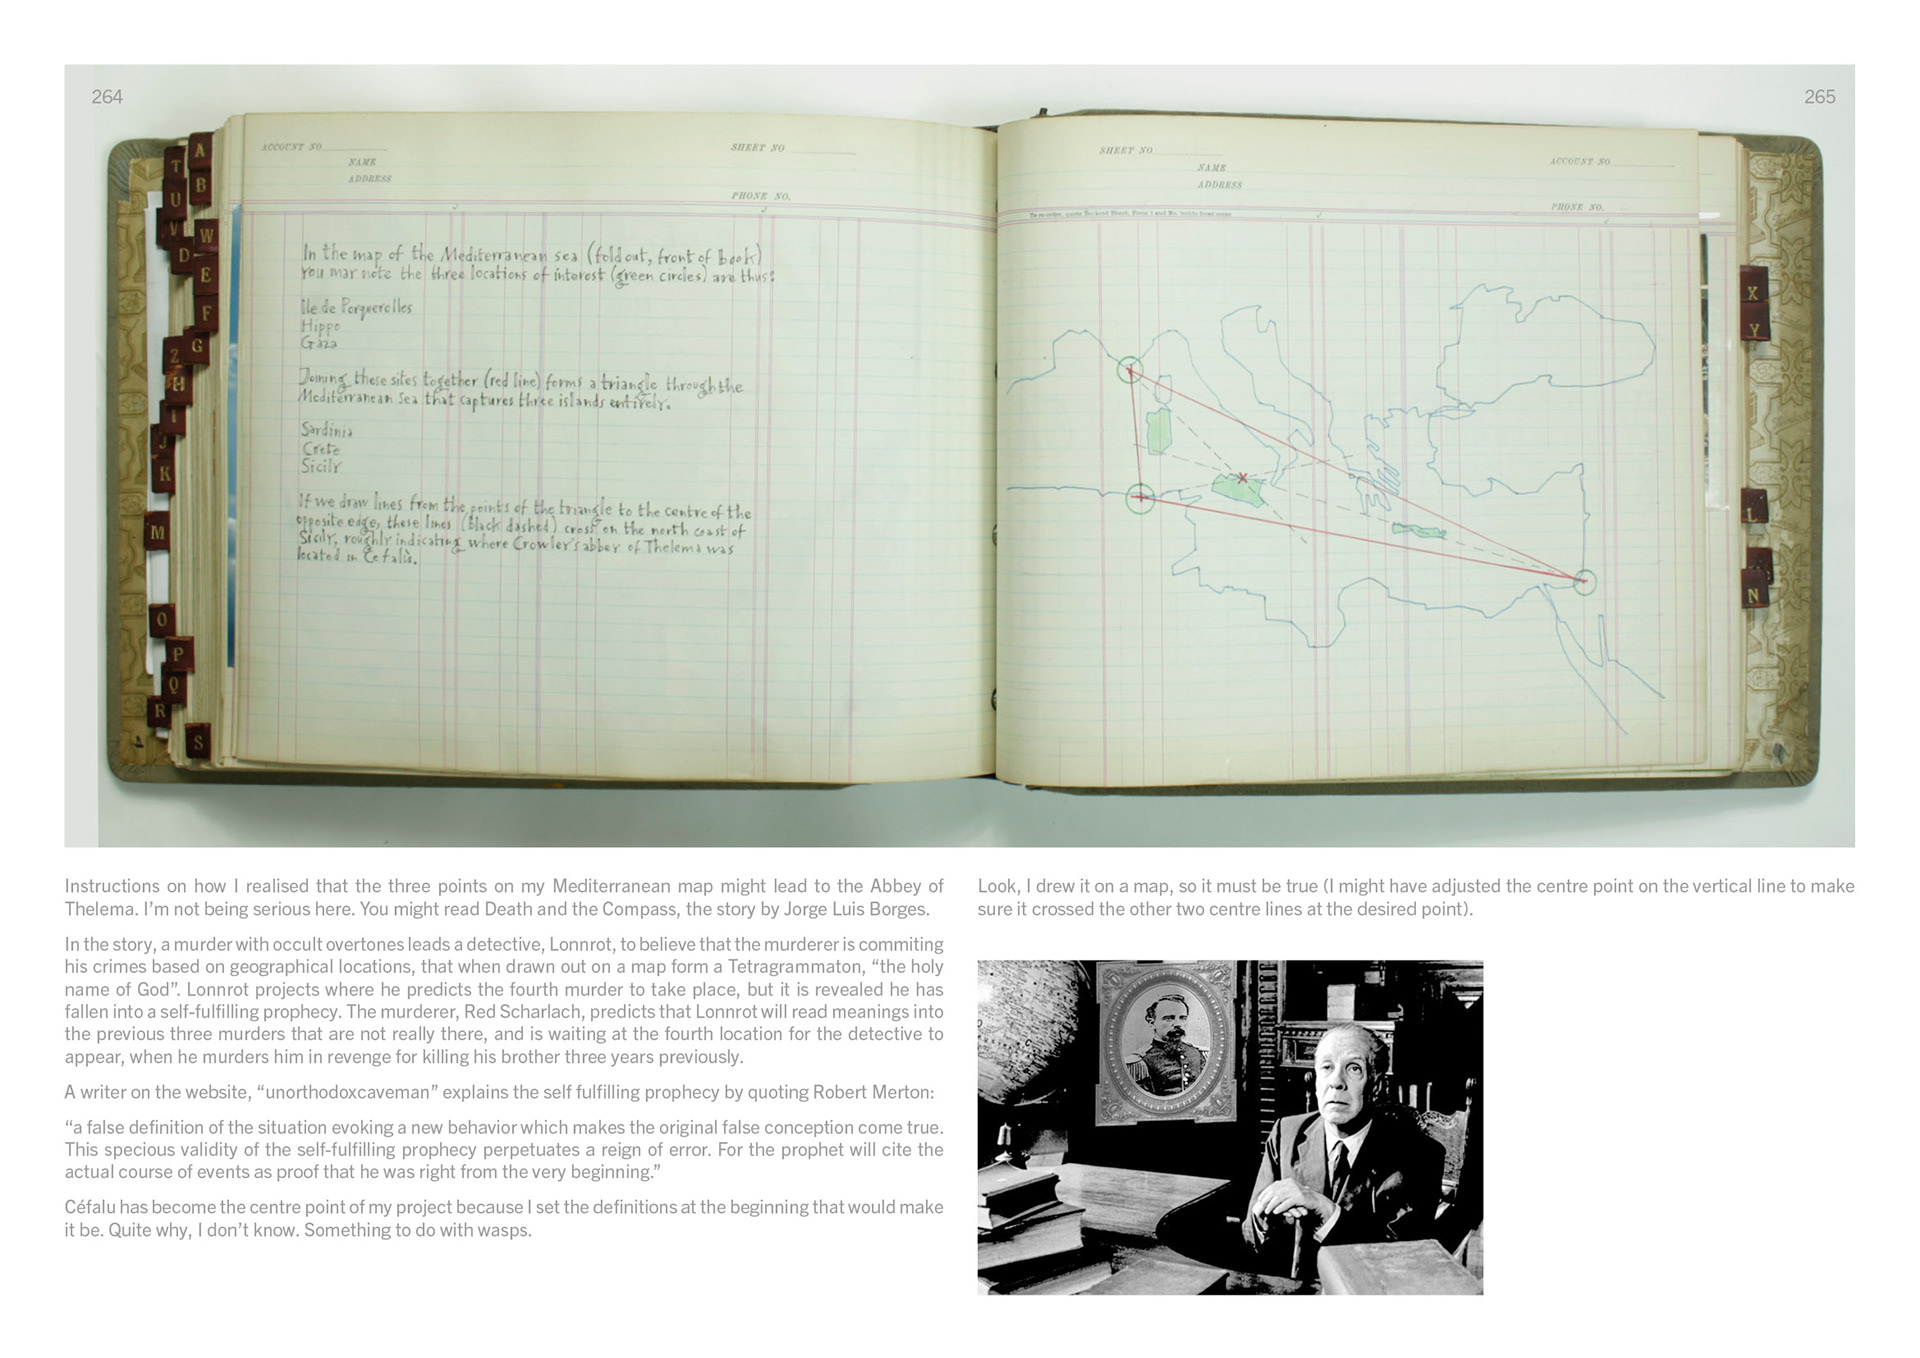 264
265
ACCOUNT NO
SHEET NO
NAME
ADDRESS
PHONE NO.
SHEET NO
ACCOUNT NO
NAME
ADDRESS
PHONE NO.
A
T
B
U
V
W
D
E
F
G
Z
H
I
J
K
M
O
P
Q
R
S
X
Y
L
N
In the map of the Mediterranean sea (fold out, front of book)
you may note the three locations of interest (green circles) are thus:
Ile de Porquerolles
Hippo
Gaza
Joining these sites together (red line) forms a triangle through the
Mediterranean Sea that captures three islands entirely.
Sardinia
Crete
Sicily
If we draw lines from the points of the triangle to the centre of the
opposite edge, these lines (black dashed) cross on the north coast of
Sicily, roughly indicating where Crowley's abbey of Thelema was
located in Cefalù.
X
Instructions on how I realised that the three points on my Mediterranean map might lead to the Abbey of
Thelema. I'm not being serious here. You might read Death and the Compass, the story by Jorge Luis Borges.
In the story, a murder with occult overtones leads a detective, Lonnrot, to believe that the murderer is commiting
his crimes based on geographical locations, that when drawn out on a map form a Tetragrammaton, “the holy
name of God”. Lonnrot projects where he predicts the fourth murder to take place, but it is revealed he has
fallen into a self-fulfilling prophecy. The murderer, Red Scharlach, predicts that Lonnrot will read meanings into
the previous three murders that are not really there, and is waiting at the fourth location for the detective to
appear, when he murders him in revenge for killing his brother three years previously.
A writer on the website, “unorthodoxcaveman” explains the self fulfilling prophecy by quoting Robert Merton:
“a false definition of the situation evoking a new behavior which makes the original false conception come true.
This specious validity of the self-fulfilling prophecy perpetuates a reign of error. For the prophet will cite the
actual course of events as proof that he was right from the very beginning.”
Céfalu has become the centre point of my project because I set the definitions at the beginning that would make
it be. Quite why, I don't know. Something to do with wasps.
Look, I drew it on a map, so it must be true (I might have adjusted the centre point on the vertical line to make
sure it crossed the other two centre lines at the desired point).